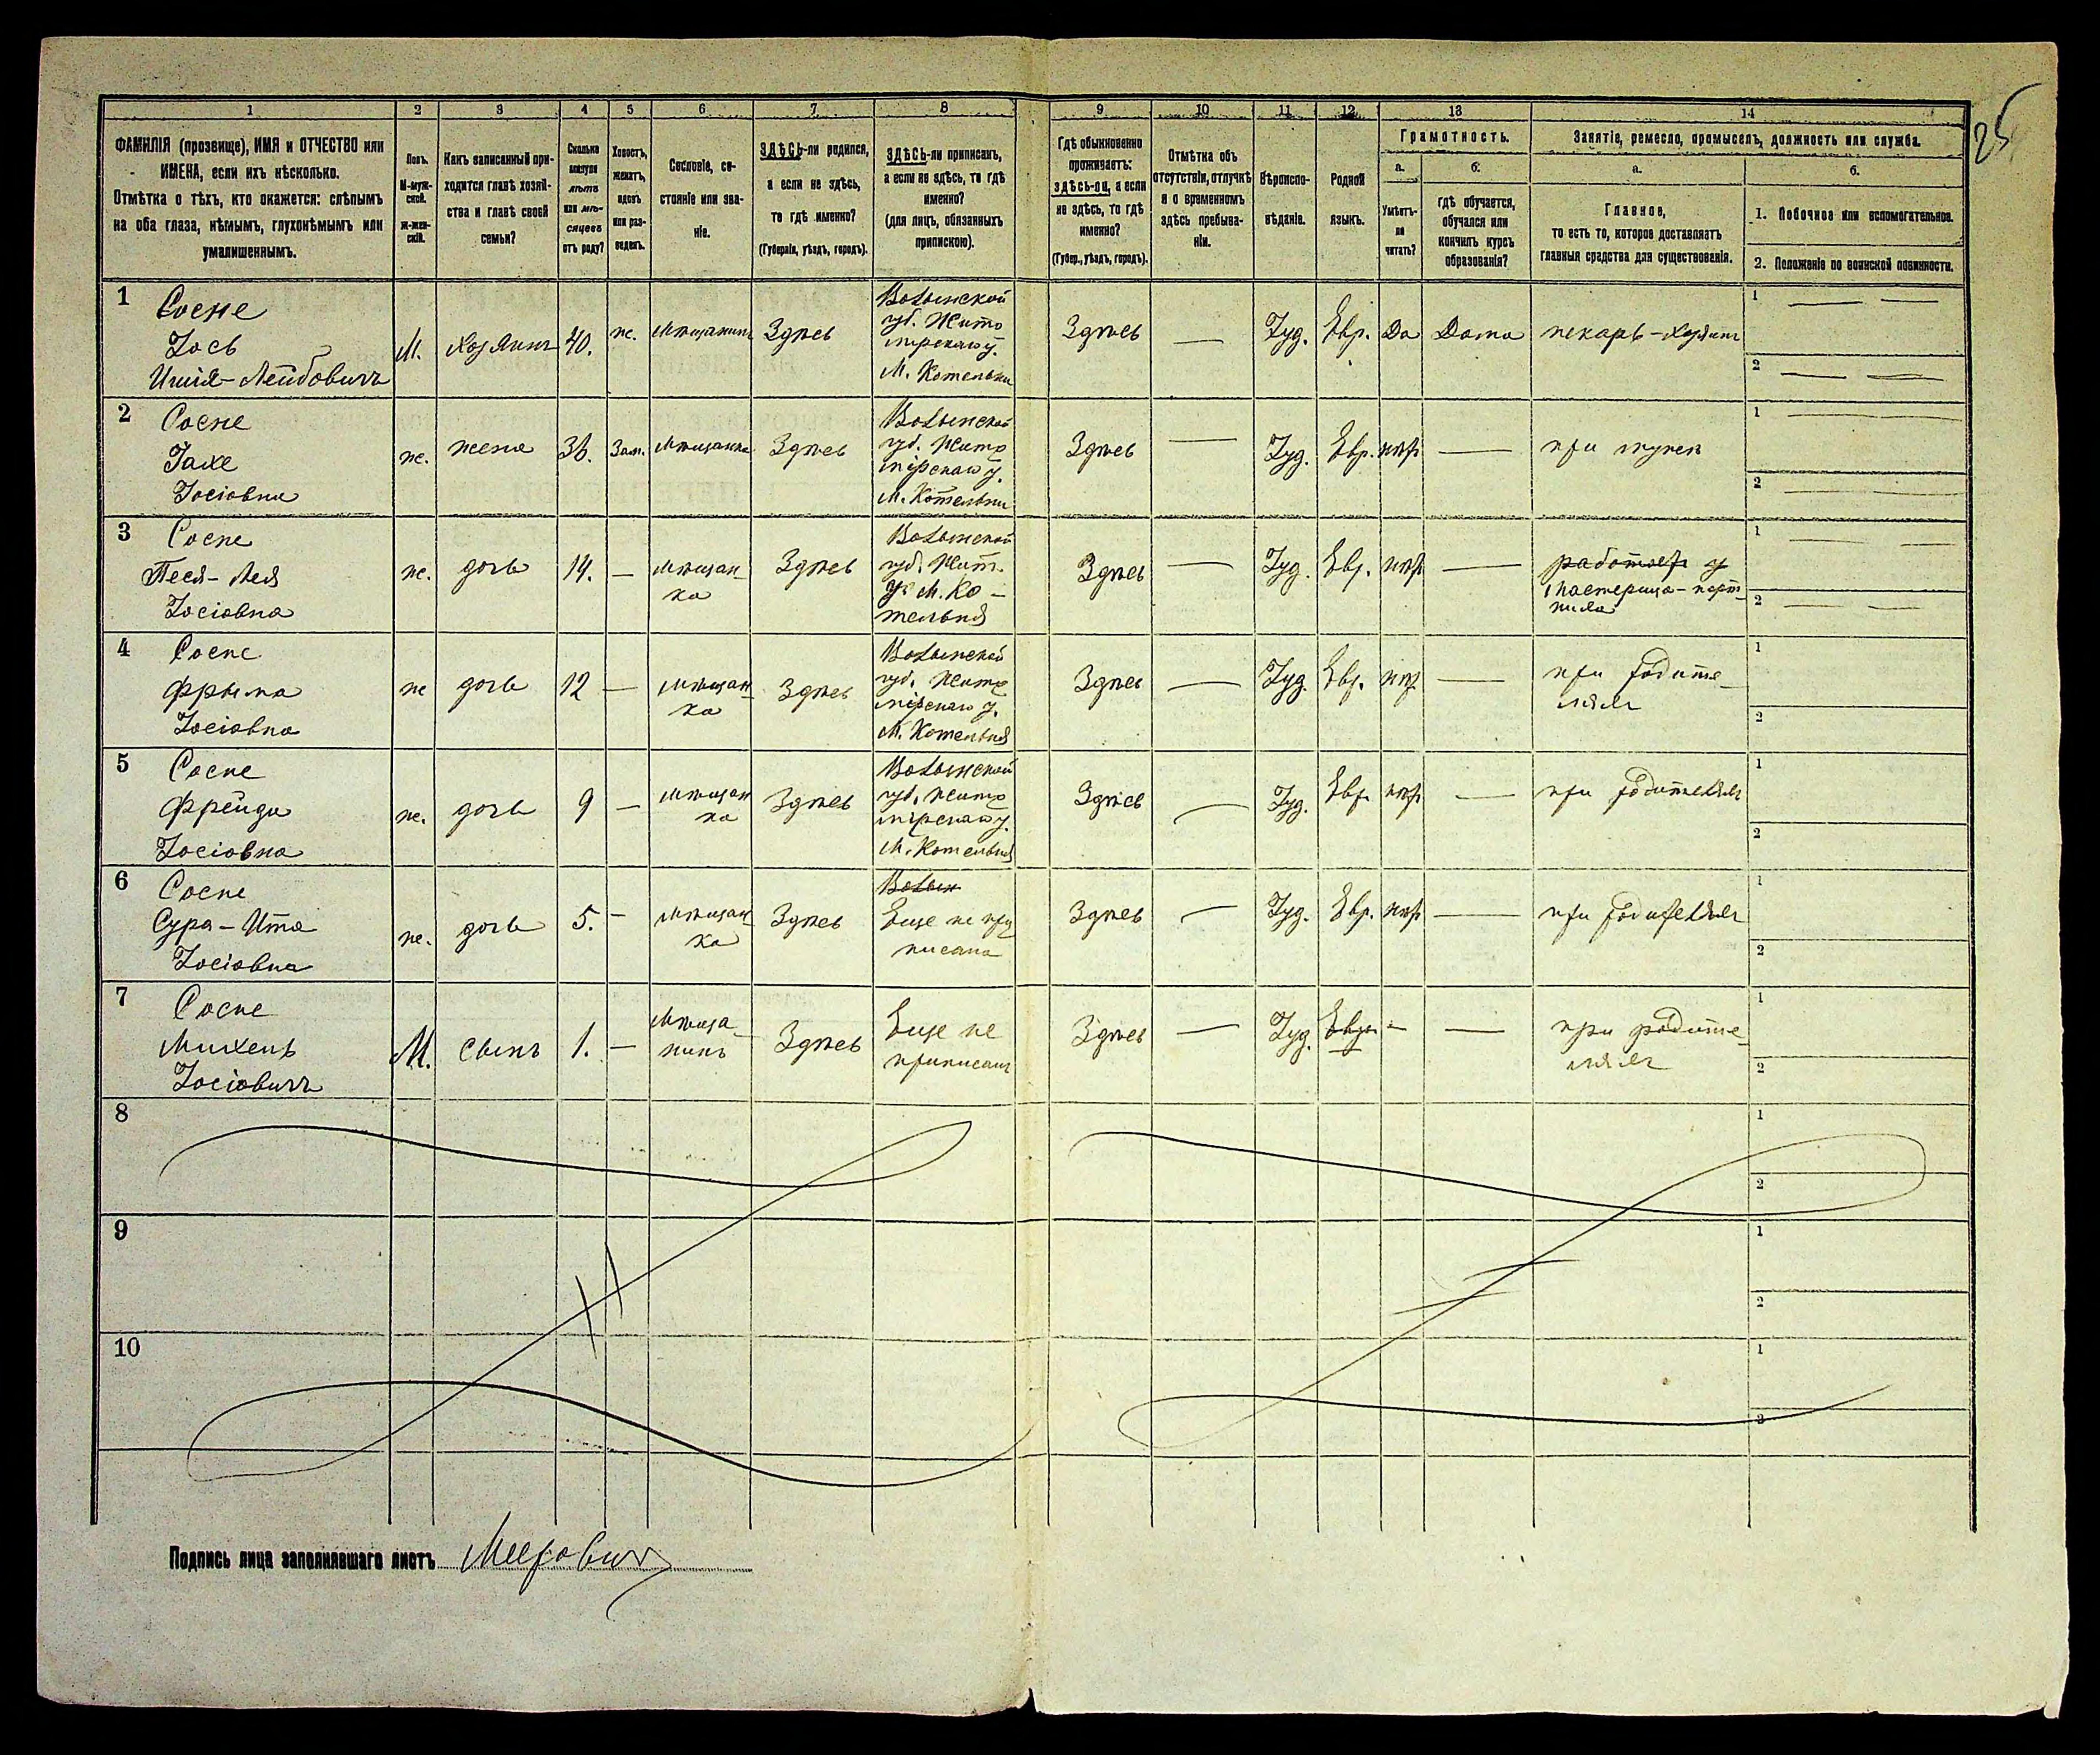 25
1 2 3 4 5 6 7 8 9 10 11 12 13 14
ФАМИЛІЯ (прозвище), ИМЯ и ОТЧЕСТВО или
ИМЕНА, если ихъ нѣсколько.
Отмѣтка о тѣхъ, кто окажется: слѣпымъ
на оба глаза, нѣмымъ, глухонѣмымъ или
умалишеннымъ.
Полъ.
М-муж-
ской.
Ж-жен-
скій.
Какъ записанный при-
ходится главѣ хозяй-
ства и главѣ своей
семьи?
Сколько
минуло
лѣтъ
или мѣ-
сяцевъ
отъ роду?
Холостъ,
женатъ,
вдовъ
или раз-
веденъ.
Сословіе, со-
стояніе или зва-
ніе.
ЗДѢСЬ-ли родился,
а если не здѣсь,
то гдѣ именно?
(Губернія, уѣздъ, городъ).
ЗДѢСЬ-ли приписанъ,
а если не здѣсь, то гдѣ
именно?
(для лицъ, обязанныхъ
припискою).
Гдѣ обыкновенно
проживаетъ:
здѣсь-ли, а если
не здѣсь, то гдѣ
именно?
(Губер., уѣздъ, городъ).
Отмѣтка объ
отсутствіи, отлучкѣ
и о временномъ
здѣсь пребыва-
ніи.
Вѣроиспо-
вѣданіе.
Родной
языкъ.
Грамотность.
а.
Умѣетъ-
ли
читать?
б.
гдѣ обучается,
обучался или
кончилъ курсъ
образованія?
Занятіе, ремесло, промыселъ, должность или служба.
а.
Главное,
то есть то, которое доставляетъ
главныя средства для существованія.
б.
1. Побочное или вспомогательное.
2. Положеніе по воинской повинности.
1
Сосне
Іось
Ишія-Лейбовичъ
М.
Хозяинъ
40.
же.
Мѣщанинъ
Здѣсь
Волынской
губ. Жито
мірскаго у.
М. Котельни
Здѣсь
—
Іуд.
Евр.
Да
Дома
пекарь-хозяинъ
1 — —
2 — —
2
Сосне
Іосіовна
же.
жена
36.
Зам.
Мѣщанка
Здѣсь
Волынской
губ. Жито
мірскаго у.
М. Котельни
Здѣсь
—
Іуд.
Евр.
нѣт
—
при мужѣ
1
2
3
Сосне
Песя-Лея
Іосіовна
же.
дочь
14.
—
Мѣщан-
ка
Здѣсь
Волынской
губ. Жит.
у. М. Ко-
тельня
Здѣсь
—
Іуд.
Евр.
нѣт
—
работает у
мастерица-порт-
ниха
1
2
4
Сосне
Фрыма
Іосіовна
же
дочь
12
—
Мѣщан-
ка
Здѣсь
Волынской
губ. Жито
мірскаго у.
М. Котельня
Здѣсь
—
Іуд.
Евр.
нѣт
—
при родите-
ляхъ
1
2
5
Сосне
Фрейда
Іосіовна
же.
дочь
9
—
Мѣщан
ка
Здѣсь
Волынской
губ. Жито
мірскаго у.
М. Котельня
Здѣсь
—
Іуд.
Евр.
нѣт
—
при родителях
1
2
6
Сосне
Сура-Ита
Іосіовна
же.
дочь
5.
—
Мѣщан
ка
Здѣсь
Волын
Еще не при
писана
Здѣсь
—
Іуд.
Евр.
нѣт
—
при родителях
1
2
7
Сосне
Михель
Іосіовичъ
М.
сынъ
1.
—
Мѣща-
нинъ
Здѣсь
Еще не
приписан
Здѣсь
—
Іуд.
Евр.
—
—
при родите-
ляхъ
1
2
8
1
2
9
1
2
10
1
2
Подпись лица заполнявшаго листъ Меерович